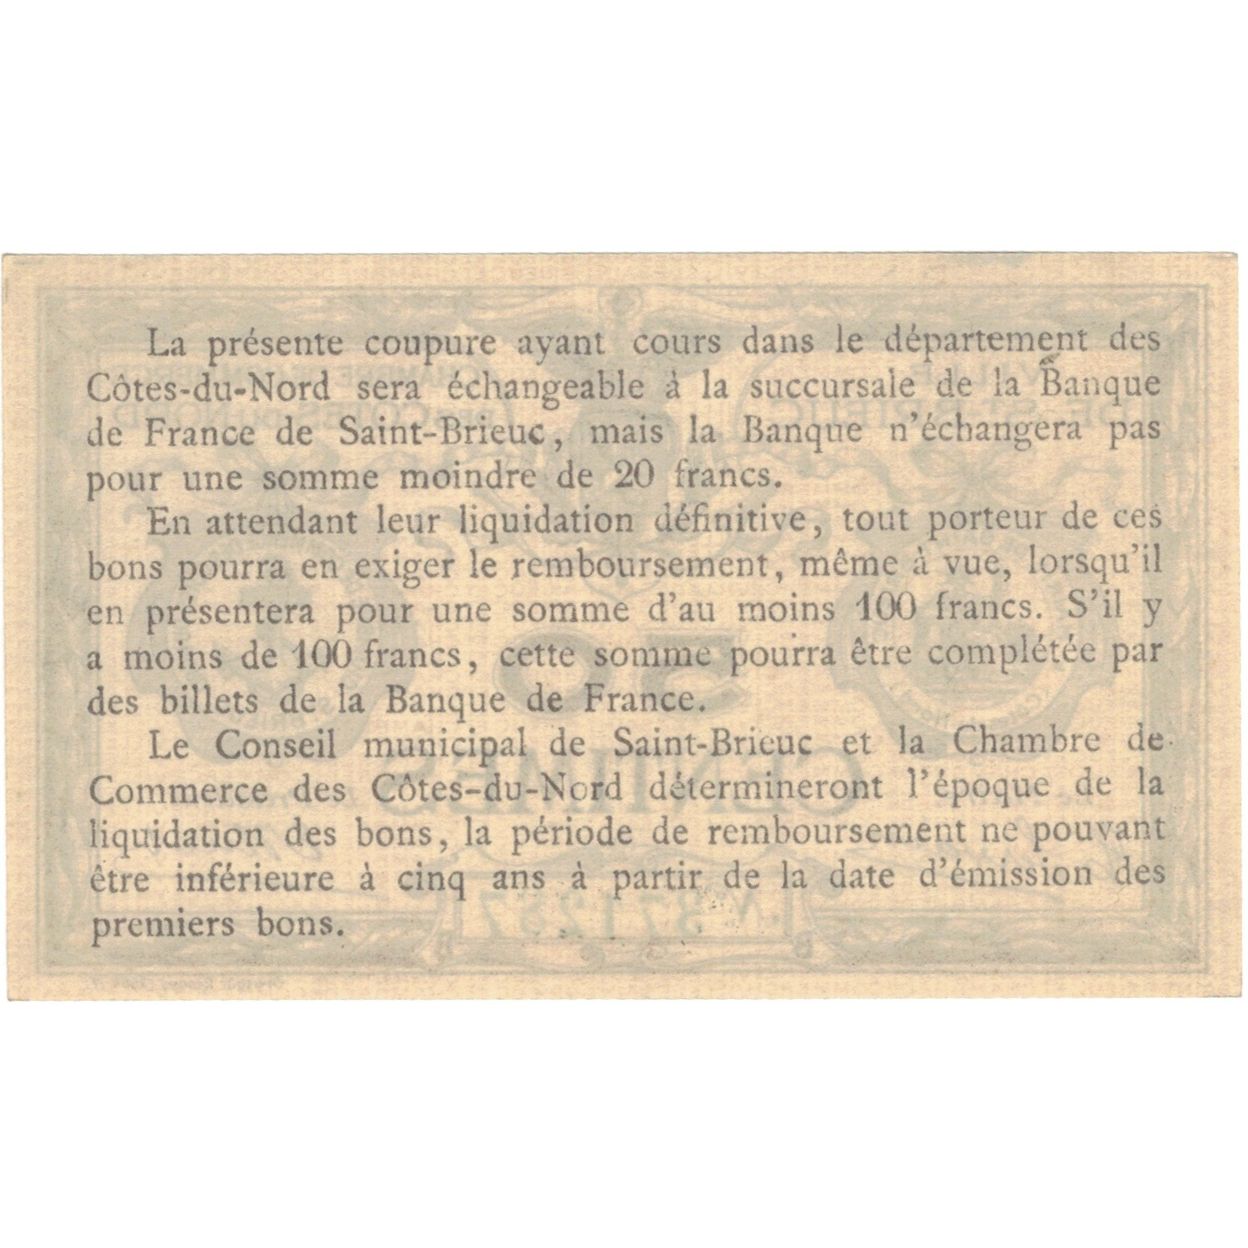 La présente coupure ayant cours dans le département des
Côtes-du-Nord sera échangeable à la succursale de la Banque
de France de Saint-Brieuc, mais la Banque n'échangera pas
pour une somme moindre de 20 francs.
En attendant leur liquidation définitive, tout porteur de ces
bons pourra en exiger le remboursement, même à vue, lorsqu'il
en présentera pour une somme d'au moins 100 francs. S'il y
a moins de 100 francs, cette somme pourra être complétée par
des billets de la Banque de France.
Le Conseil municipal de Saint-Brieuc et la Chambre de
Commerce des Côtes-du-Nord détermineront l'époque de la
liquidation des bons, la période de remboursement ne pouvant
être inférieure à cinq ans à partir de la date d'émission des
premiers bons.